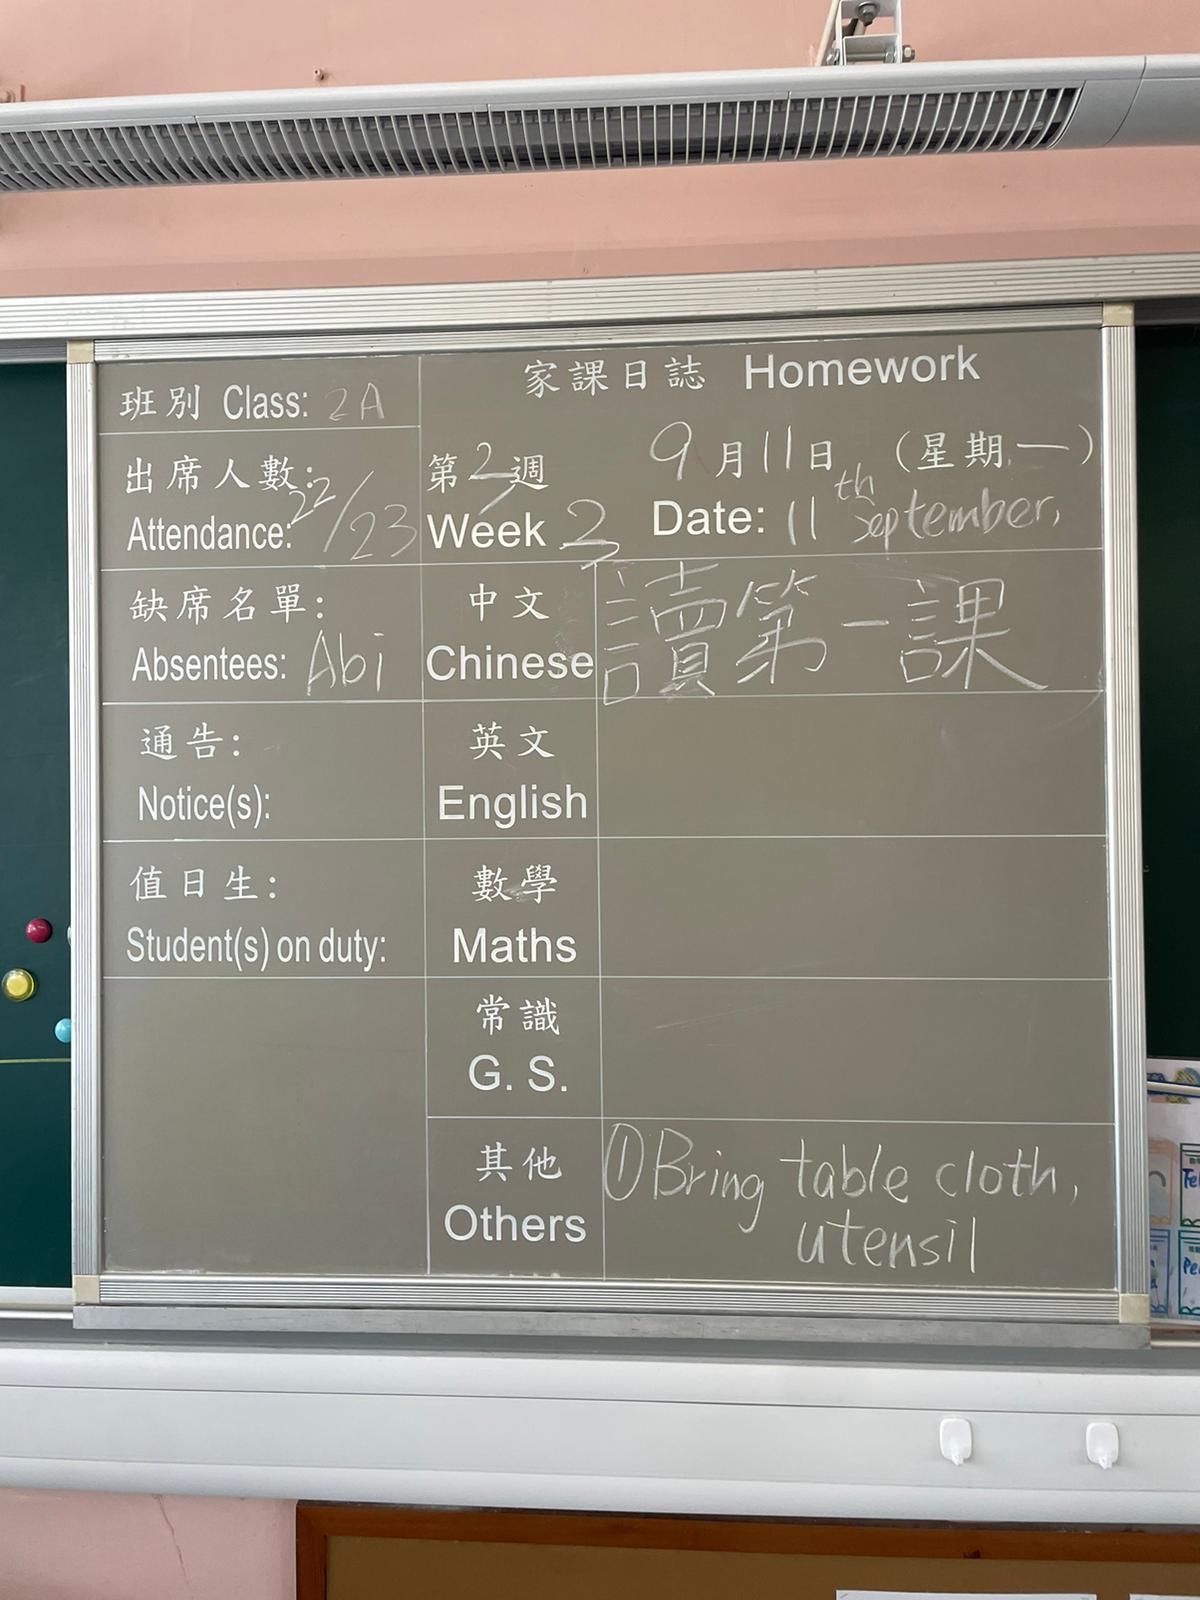 家課日誌 Homework
班別 Class: 2A
出席人數:
Attendance: 22/23
第2週
Week 2
9月11日 (星期一)
Date: 11th September,
缺席名單:
Absentees: Abi
中文
Chinese
讀第一課
通告:
Notice(s):
英文
English
值日生:
Student(s) on duty:
數學
Maths
常識
G. S.
其他
Others
①Bring table cloth,
utensil